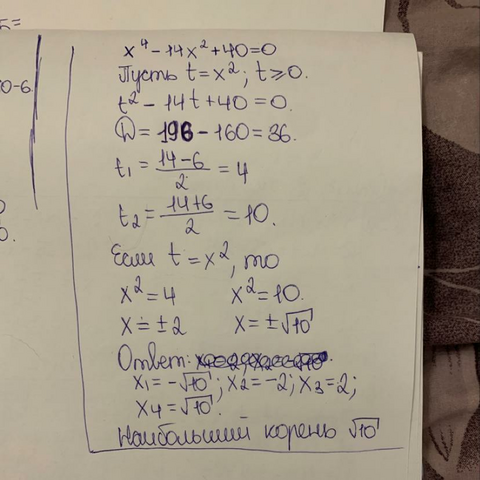 5=
0-6
0
0.
x⁴-14x²+40=0
Пусть t=x²; t≥0.
t²-14t+40=0.
D=196-160=36.
t₁=(14-6)/2=4
t₂=(14+6)/2=10.
Если t=x², то
x²=4 x²=10.
x=±2 x=±√10
Ответ:
x₁=-√10; x₂=-2; x₃=2;
x₄=√10.
Наибольший корень √10